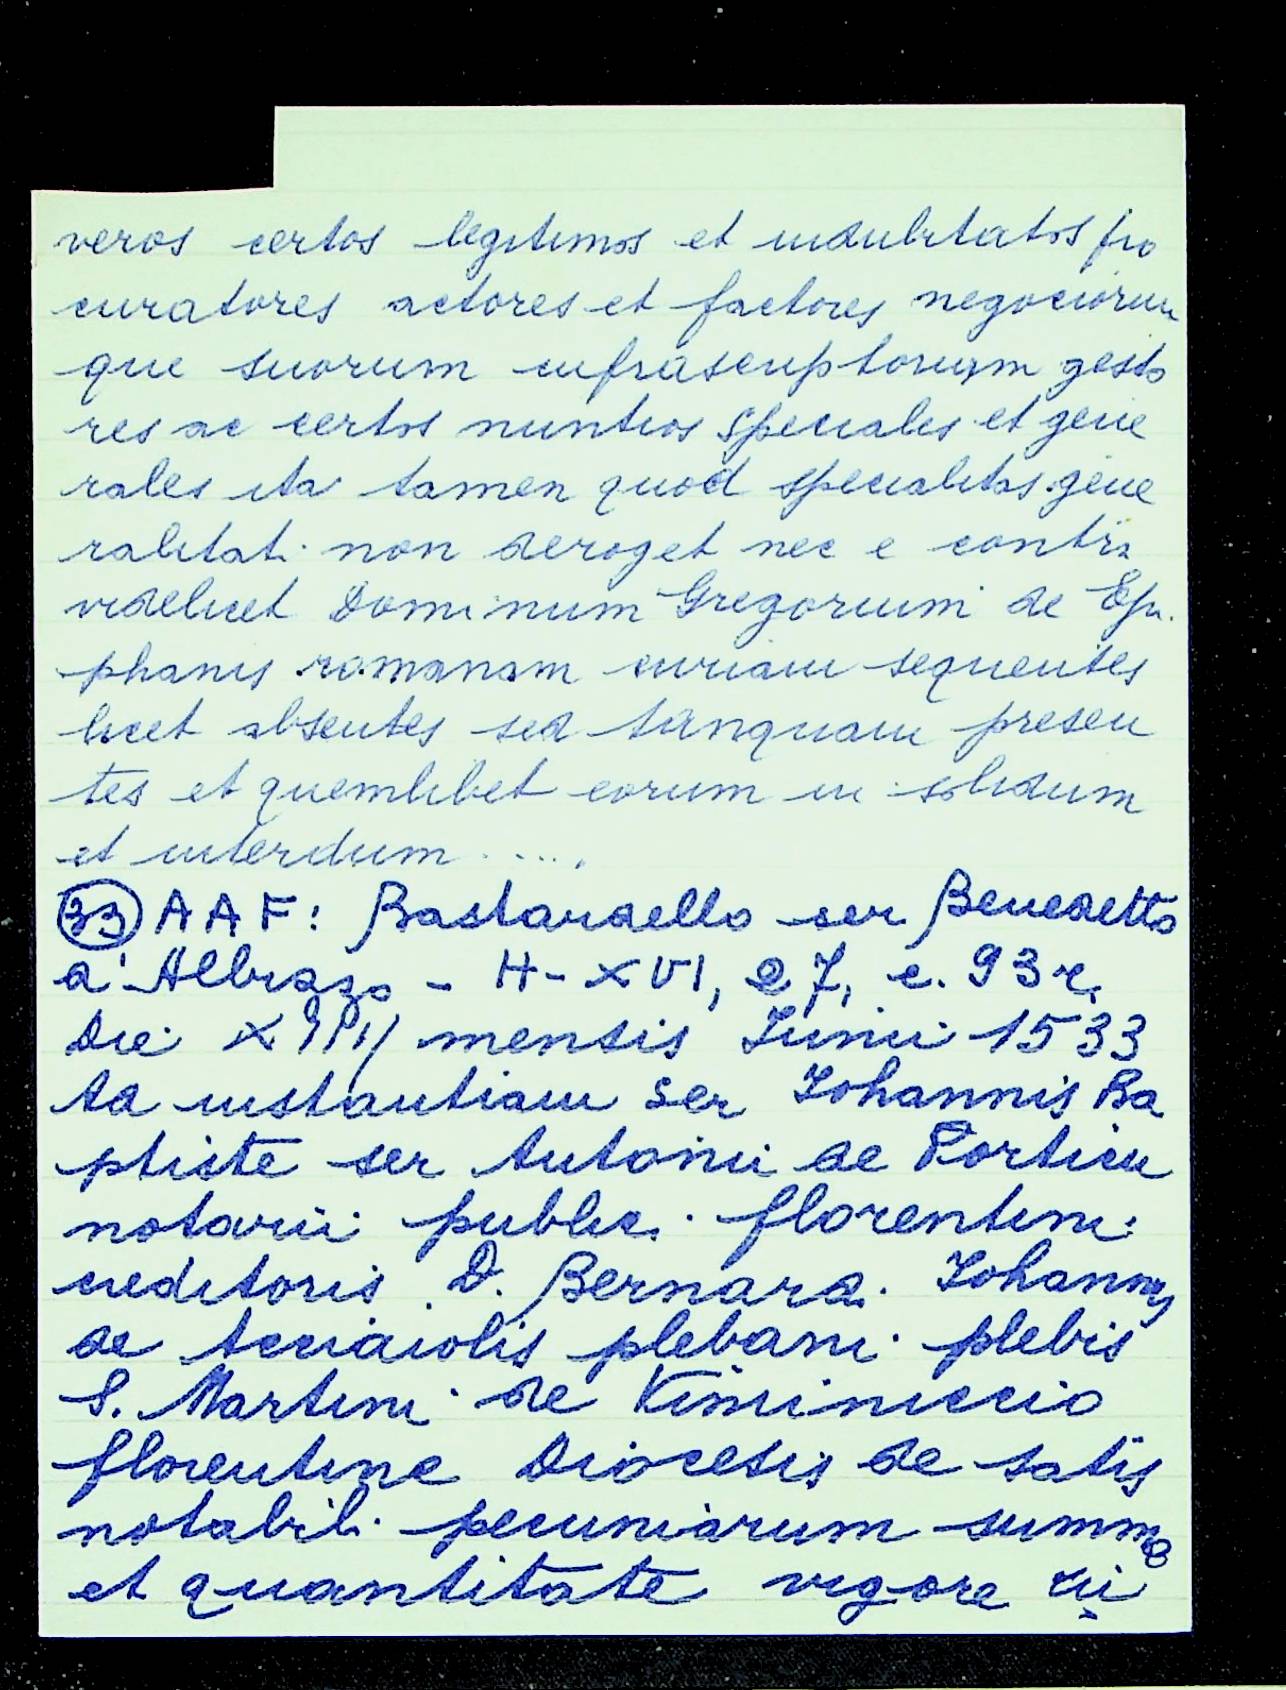 veros certos legitimos et indubitatos pro
curatores actores et factores negociorum
que suorum infrascriptorum gesto
res ac certos nuntios speciales et gene
rales ita tamen quod specialitas gene
ralitati non deroget nec e contra
videlicet Dominum Gregorium de Epi
phanis romanam curiam sequentes
licet absentes sed tanquam presen
tes et quemlibet eorum in solidum
et interdum .....
33 AAF: Bastardello ser Benedetto
d'Albizzo - H-XVI, 27, c. 93r.
Die XIIII mensis Junii 1533
Ad instantiam ser Johannis Ba
ptiste ser Antonii de Porticu
notarii publici florentini
creditoris D. Bernardi Johannis
de Acciaiolis plebani plebis
S. Martini de Viminiccio
florentine Diocesis de satis
notabili pecuniarum summa
et quantitate vigore